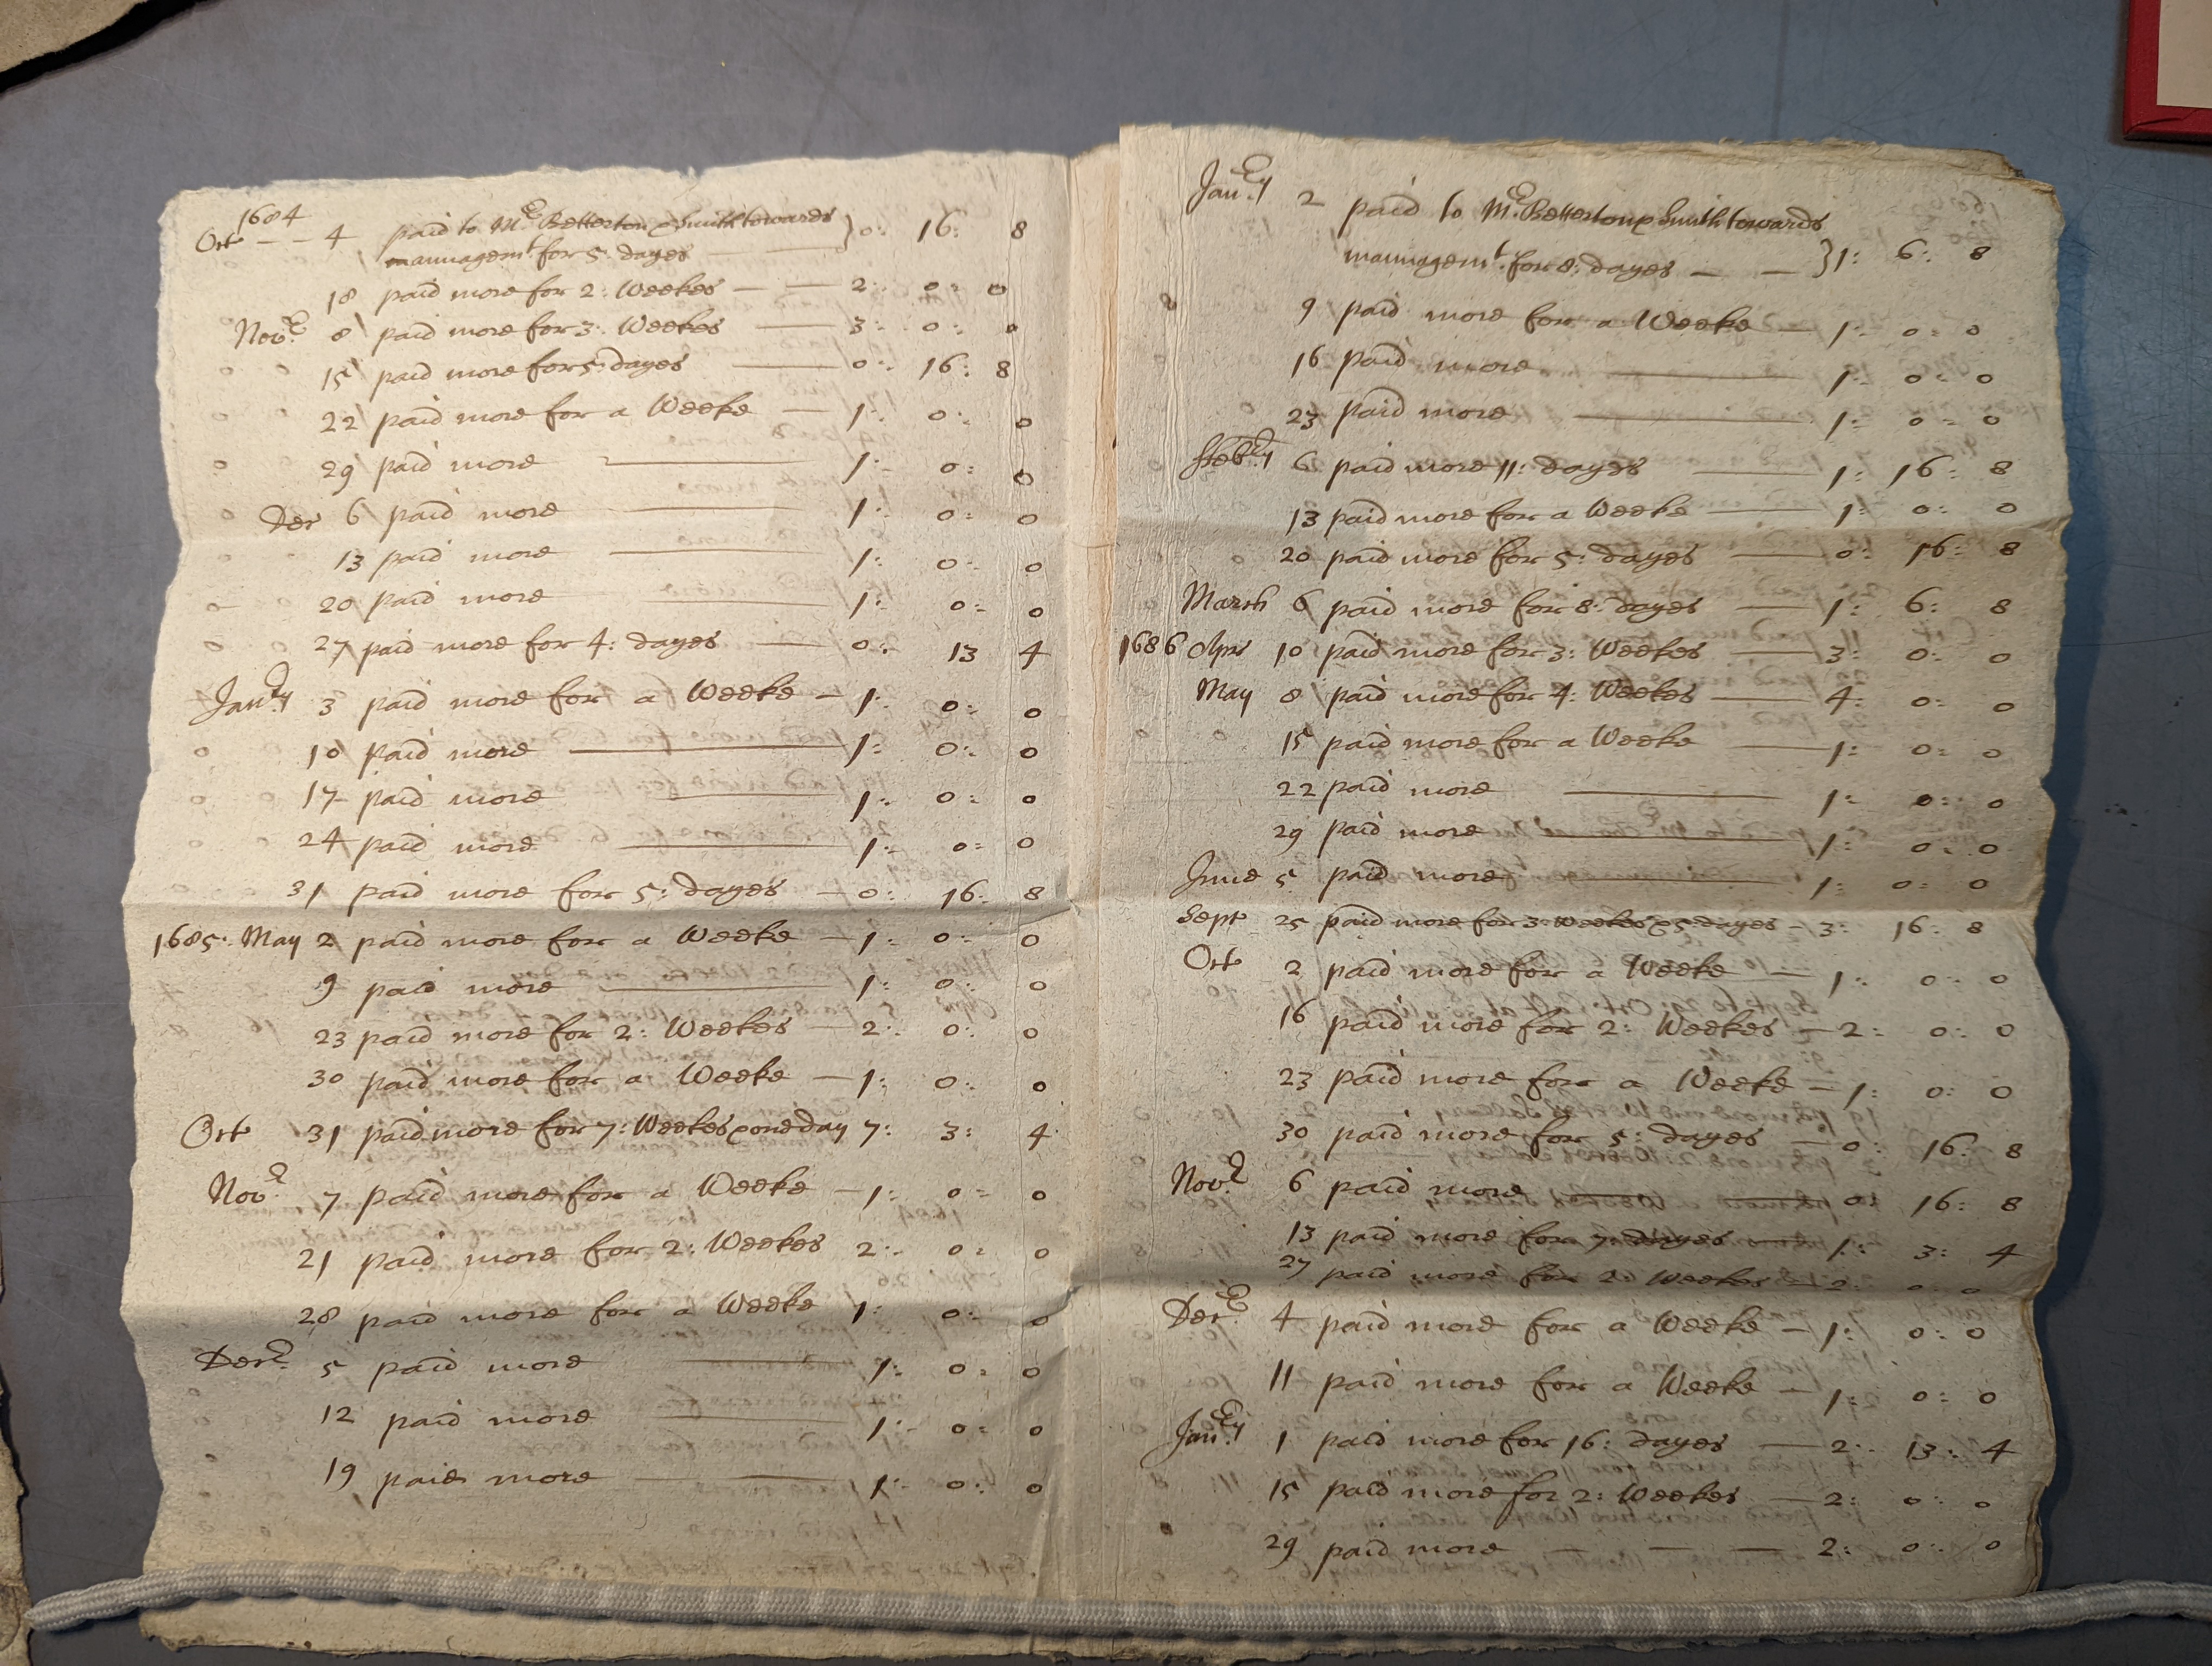 1684
Oct - - 4 paid to Mr Betterton & Smith towards
mannagemt for 5 dayes - - } 0: 16: 8
18 paid more for 2: Weekes - - 2: 0: 0
Novr 8 paid more for 3: Weekes - 3: 0: 0
15 paid more for 5 dayes - 0: 16: 8
22 paid more for a Weeke - 1: 0: 0
29 paid more - 1: 0: 0
Dec 6 paid more - 1: 0: 0
13 paid more - 1: 0: 0
20 paid more - 1: 0: 0
27 paid more for 4: dayes - 0: 13 4
Janry 3 paid more for a Weeke - 1: 0: 0
10 paid more - 1: 0: 0
17 paid more - 1: 0: 0
24 paid more - 1: 0: 0
31 paid more for 5: dayes - 0: 16: 8
1685: May 2 paid more for a Weeke - 1: 0: 0
9 paid more - 1: 0: 0
23 paid more for 2: Weekes - 2: 0: 0
30 paid more for a Weeke - 1: 0: 0
Oct 31 paid more for 7: Weekes & one day 7: 3: 4
Novr 7 paid more for a Weeke - 1: 0: 0
21 paid more for 2: Weekes 2: 0: 0
28 paid more for a Weeke 1: 0: 0
Decr 5 paid more - 1: 0: 0
12 paid more - 1: 0: 0
19 paid more - - 1: 0: 0
Janry 2 paid to Mr Betterton & Smith towards
mannagemt for 8: dayes - - } 1: 6: 8
9 paid more for a Weeke - 1: 0: 0
16 paid more - 1: 0: 0
23 paid more - 1: 0: 0
ffebry 6 paid more 11: dayes - 1: 16: 8
13 paid more for a Weeke - 1: 0: 0
20 paid more for 5: dayes - 0: 16: 8
March 6 paid more for 8: dayes - 1: 6: 8
1686 Apr 10 paid more for 3: Weekes - 3: 0: 0
May 8 paid more for 4: Weekes - 4: 0: 0
15 paid more for a Weeke - 1: 0: 0
22 paid more - 1: 0: 0
29 paid more - 1: 0: 0
June 5 paid more - 1: 0: 0
Sept 25 paid more for 3: weekes & 5: dayes - 3: 16: 8
Oct 2 paid more for a Weeke - 1: 0: 0
16 paid more for 2: Weekes - 2: 0: 0
23 paid more for a Weeke - 1: 0: 0
30 paid more for 5: dayes - 0: 16: 8
Novr 6 paid more - - 0: 16: 8
13 paid more for 7: dayes - 1: 3: 4
27 paid more for 2: Weekes - 2: 0: 0
Decr 4 paid more for a Weeke - 1: 0: 0
11 paid more for a Weeke - 1: 0: 0
Janry 1 paid more for 16: dayes - 2: 13: 4
15 paid more for 2: Weekes - 2: 0: 0
29 paid more - - - 2: 0: 0